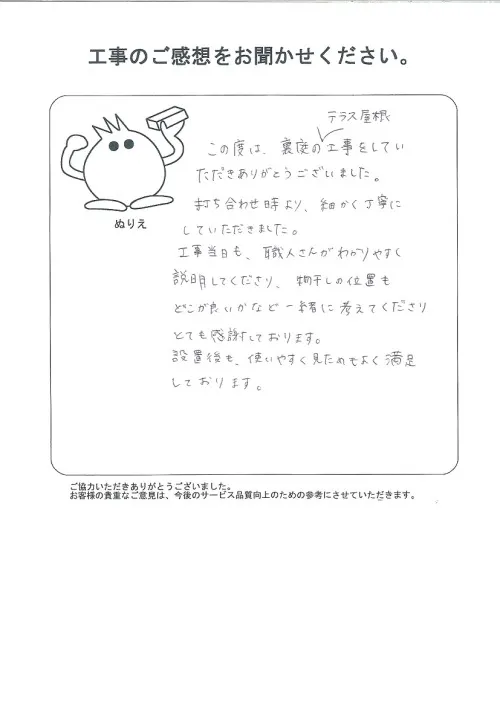 工事のご感想をお聞かせください。
ぬりえ
テラス屋根
この度は、裏庭の工事をしてい
ただきありがとうございました。
打ち合わせ時より、細かく丁寧に
していただきました。
工事当日も、職人さんがわかりやすく
説明してくださり、物干しの位置も
どこが良いかなど一緒に考えてくださり
とても感謝しております。
設置後も、使いやすく見ためもよく満足
しております。
ご協力いただきありがとうございました。
お客様の貴重なご意見は、今後のサービス品質向上のための参考にさせていただきます。